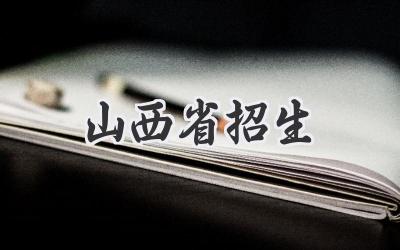 山西省招生